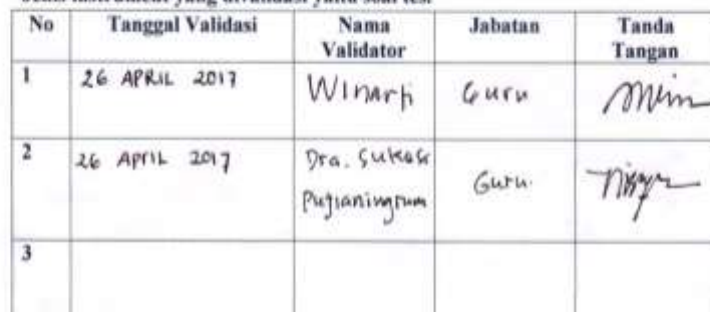 Jenis instrument yang divalidasi yaitu soal tes
No Tanggal Validasi Nama Validator Jabatan Tanda Tangan
1 26 APRIL 2017 Winarti Guru
2 26 APRIL 2017 Dra. Sukesi Pujianingrum Guru
3